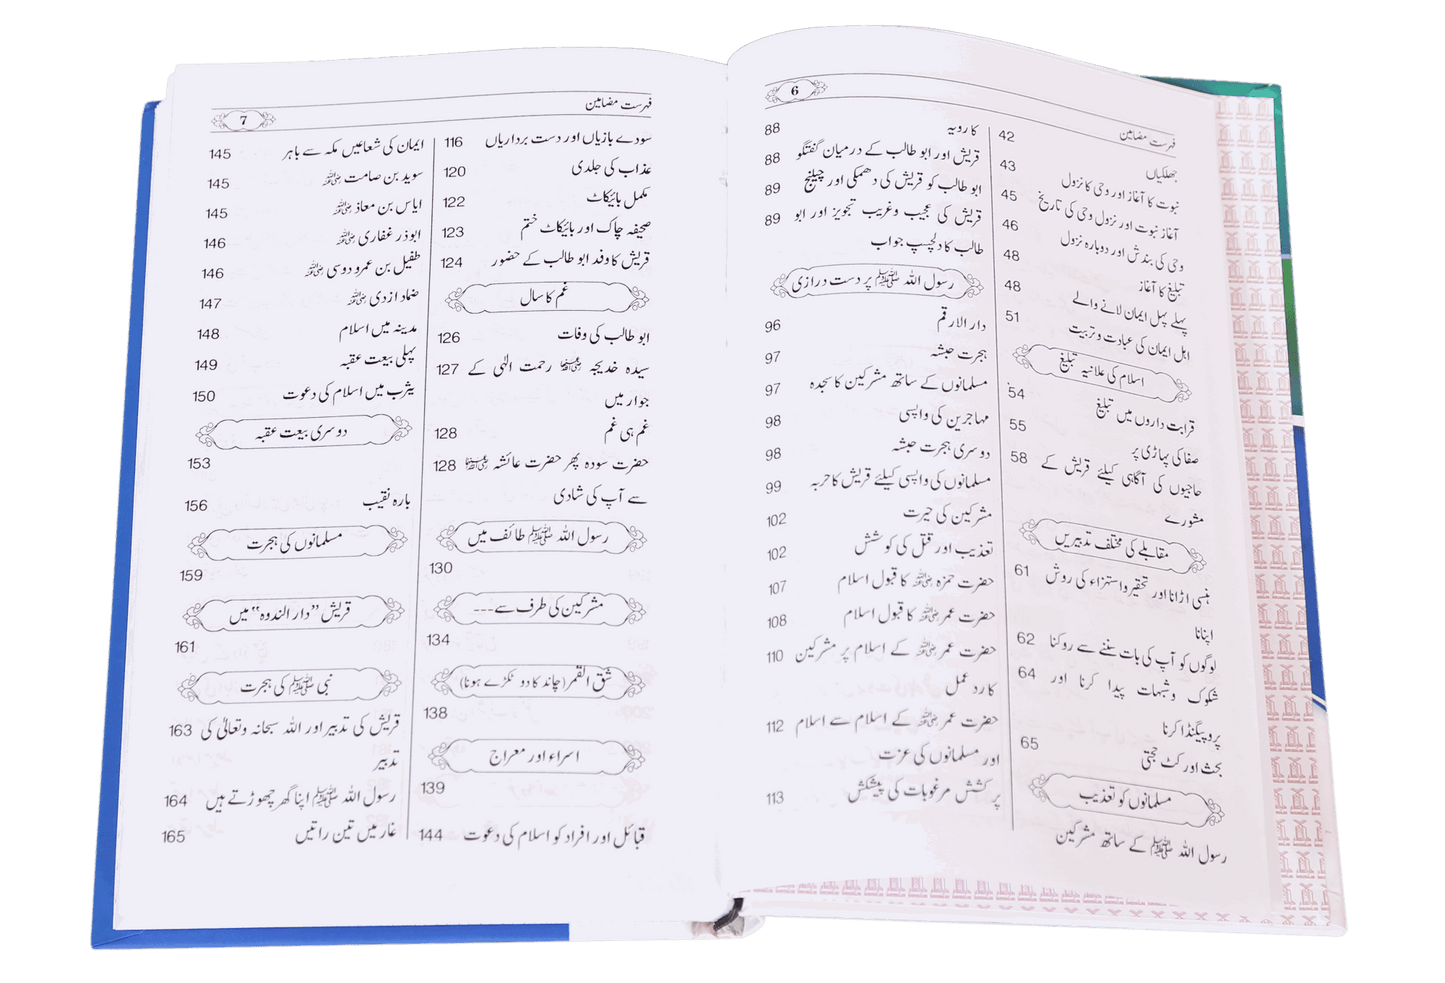 فہرست مضامین 6
جھلکیاں 42
نبوت کا آغاز اور وحی کا نزول 43
آغاز نبوت اور نزول وحی کی تاریخ 45
وحی کی بندش اور دوبارہ نزول 46
تبلیغ کا آغاز 48
پہلے پہل ایمان لانے والے 48
اہل ایمان کی عبادت و تربیت 51
اسلام کی علانیہ تبلیغ
قرابت داروں میں تبلیغ 54
صفا کی پہاڑی پر 55
حاجیوں کی آگاہی کیلئے قریش کے 58
مشورے
مقابلے کی مختلف تدبیریں
ہنسی اڑانا اور تحقیر و استہزاء کی روش 61
اپنانا
لوگوں کو آپ کی بات سننے سے روکنا 62
شکوک و شبہات پیدا کرنا اور 64
پروپیگنڈا کرنا
بحث اور کٹ حجتی 65
مسلمانوں کو تعذیب
رسول اللہ ﷺ کے ساتھ مشرکین
کا رویہ 88
قریش اور ابو طالب کے درمیان گفتگو 88
ابو طالب کو قریش کی دھمکی اور چیلنج 89
قریش کی عجیب وغریب تجویز اور ابو 89
طالب کا دلچسپ جواب
رسول اللہ ﷺ پر دست درازی
دار الارقم 96
ہجرت حبشہ 97
مسلمانوں کے ساتھ مشرکین کا سجدہ 97
مہاجرین کی واپسی 98
دوسری ہجرت حبشہ 98
مسلمانوں کی واپسی کیلئے قریش کا حربہ 99
مشرکین کی حیرت 102
تعذیب اور قتل کی کوشش 102
حضرت حمزہ رضی اللہ عنہ کا قبول اسلام 107
حضرت عمر رضی اللہ عنہ کا قبول اسلام 108
حضرت عمر رضی اللہ عنہ کے اسلام پر مشرکین 110
کا رد عمل
حضرت عمر رضی اللہ عنہ کے اسلام سے اسلام 112
اور مسلمانوں کی عزت
پر کشش مرغوبات کی پیشکش 113
فہرست مضامین 7
سودے بازیاں اور دست برداریاں 116
عذاب کی جلدی 120
مکمل بائیکاٹ 122
صحیفہ چاک اور بائیکاٹ ختم 123
قریش کا وفد ابو طالب کے حضور 124
غم کا سال
ابو طالب کی وفات 126
سیدہ خدیجہ رضی اللہ عنہا رحمت الٰہی کے 127
جوار میں
غم ہی غم 128
حضرت سودہ پھر حضرت عائشہ رضی اللہ عنہما 128
سے آپ کی شادی
رسول اللہ ﷺ طائف میں
130
مشرکین کی طرف سے---
134
شق القمر (چاند کا دو ٹکڑے ہونا)
138
اسراء اور معراج
139
قبائل اور افراد کو اسلام کی دعوت 144
ایمان کی شعاعیں مکہ سے باہر 145
سوید بن صامت رضی اللہ عنہ 145
ایاس بن معاذ رضی اللہ عنہ 145
ابوذر غفاری رضی اللہ عنہ 146
طفیل بن عمرو دوسی رضی اللہ عنہ 146
ضماد ازدی رضی اللہ عنہ 147
مدینہ میں اسلام 148
پہلی بیعت عقبہ 149
یثرب میں اسلام کی دعوت 150
دوسری بیعت عقبہ
153
بارہ نقیب 156
مسلمانوں کی ہجرت
159
قریش ”دار الندوہ“ میں
161
نبی ﷺ کی ہجرت
قریش کی تدبیر اور اللہ سبحانہ وتعالیٰ کی 163
تدبیر
رسول اللہ ﷺ اپنا گھر چھوڑتے ہیں 164
غار میں تین راتیں 165